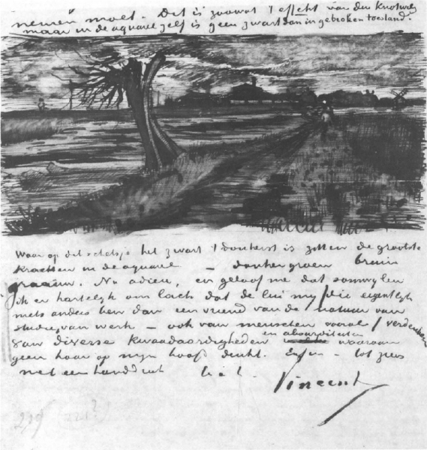 nemen moet. Dit is zoowat 't effekt van den knotwilg
maar in de aquarel zelf is geen zwart dan in gebroken toestand.
Waar op dit schetsje het zwart 't donkerst is zitten de grootste
krachten in de aquarel – donkergroen bruin
graauw. Nu adieu, en geloof me dat soms
ik er hartelijk om lach dat de lui mij die eigenlijk
niets anders ben dan een vriend van de natuur van
studie van werk – ook van menschen vooral verdenken
van diverse kwaadaardigheden en absurditeiten waaraan
geen haar op mijn hoofd denkt. Enfin – tot ziens
met een handdruk t. à t. Vincent